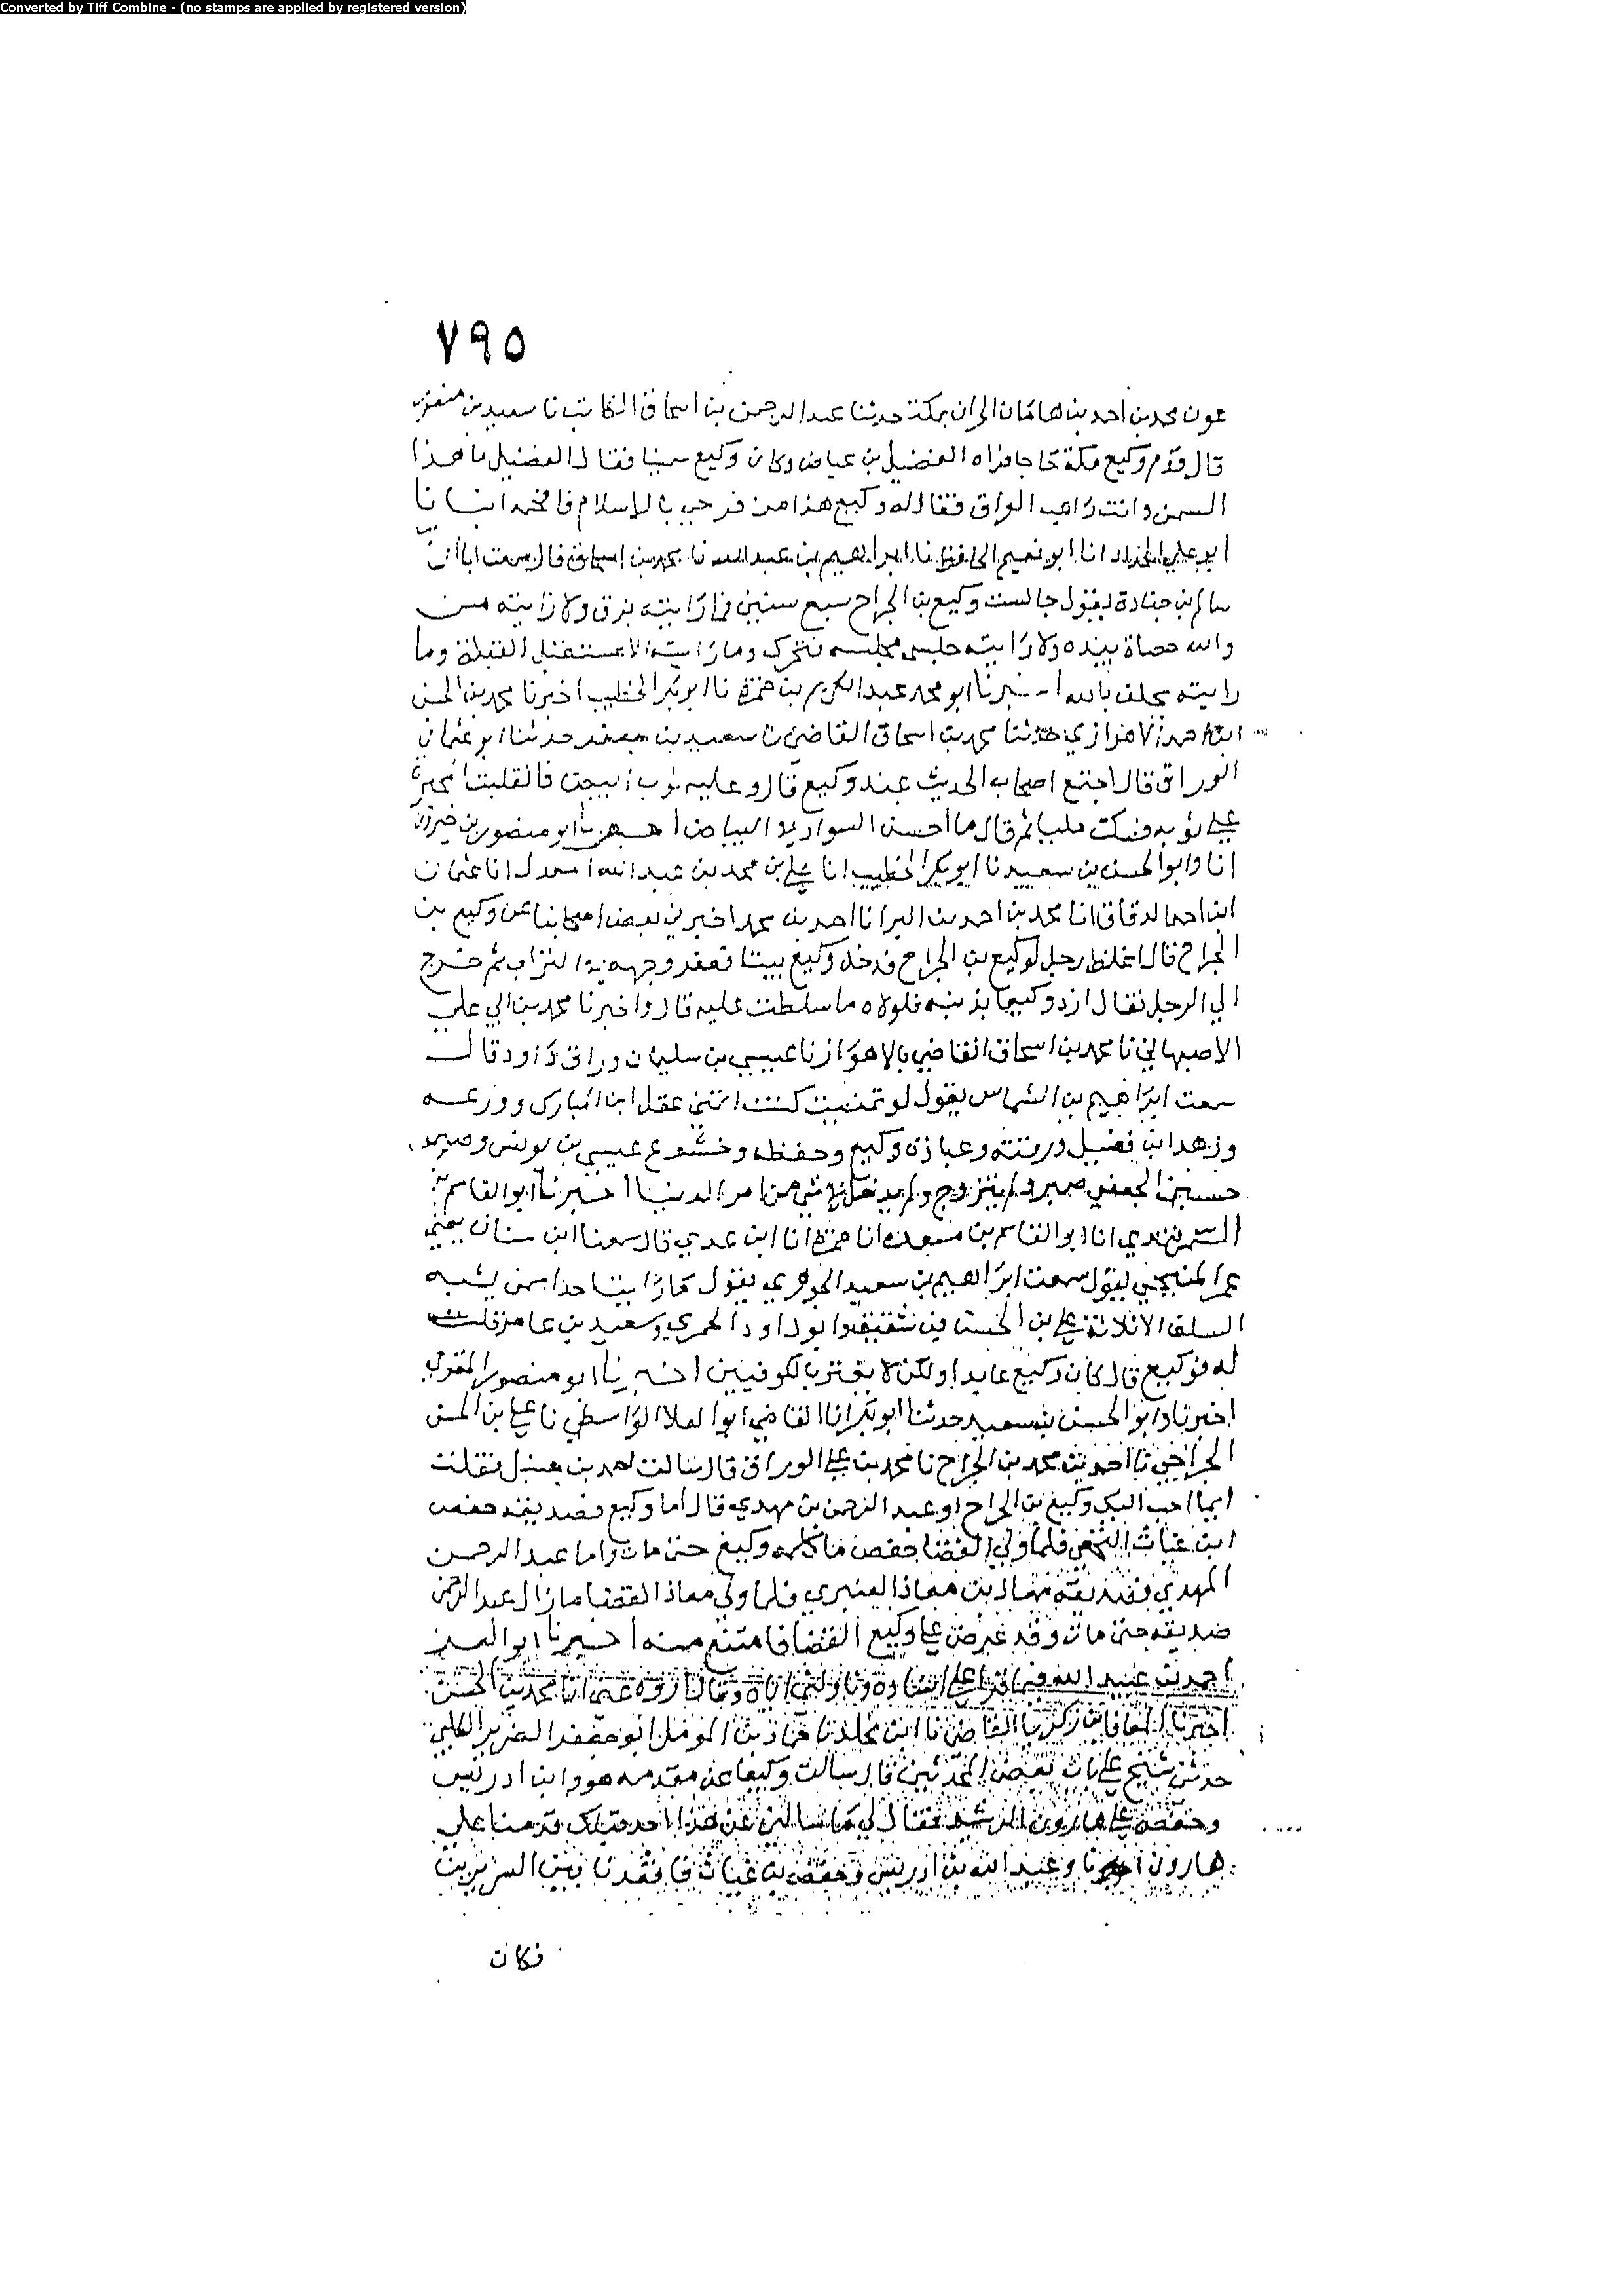 Converted by Tiff Combine - (no stamps are applied by registered version)
٧٩٥
عون محمد بن احمد بن هامان الحران بمكة حدثنا عبد الرحمن بن اسحاق الكاتب نا سعيد بن منصور
قال قدم وكيع مكة حاجا فراه الفضيل بن عياض وكان وكيع سمينا فقال الفضيل ما هذا
السمن وانت راهب العراق فقال له وكيع هذا من فرحي بالاسلام فافحمه انبانا
ابو علي الحداد انا ابو نعيم الحافظ نا ابراهيم بن عبد الله نا محمد بن اسحاق قال سمعت ابا
سالم بن جنادة يقول جالست وكيع بن الجراح سبع سنين فما رايته بزق ولا رايته مس
والله حصاة بيده ولا رايته جلس مجلسه فتحرك وما رايته الا مستقبل القبلة وما
رايته يحلف بالله اخبرنا ابو محمد عبد الكريم بن حمزة نا ابو بكر الخطيب اخبرنا محمد بن الحسن
ابن احمد الاهوازي حدثنا محمد بن اسحاق القاضي نا سعيد بن حدثنا ابو عثمان
الوراق قال اجتمع اصحاب الحديث عند وكيع قال وعليه ثوب ابيض فانقلبت المحبرة
علي ثوبه فسكت مليا ثم قال ما احسن السواد في البياض اخبرنا ابو منصور بن خيرون
انا وابو الحسن بن سعيد نا ابو بكر الخطيب انا علي بن محمد بن عبد الله المعدل انا عثمان
ابن احمد الدقاق انا محمد بن احمد بن البرا نا احمد بن محمد اخبرني بعض اصحابنا عن وكيع بن
الجراح قال اغلظ رجل لوكيع بن الجراح فدخل وكيع بيتا فعفر وجهه في التراب ثم خرج
الي الرجل فقال زد وكيعا بذنبه فلولاه ما سلطت عليه قال واخبرنا محمد بن ابي علي
الاصبهاني نا محمد بن اسحاق القاضي بالاهواز نا عيسي بن سليمان وراق داود قال
سمعت ابراهيم بن الشماس يقول لو تمنيت كنت اتمني عقل ابن المبارك وورعه
وزهد ابن فضيل ورقته وعبادة وكيع وحفظه وخشوع عيسي بن يونس وصبر
حسين الجعفي صبر ولم يتزوج ولم يدخل في شي من امر الدنيا اخبرنا ابو القاسم بن
السمرقندي انا ابو القاسم بن مسعدة انا حمزة انا ابن عدي قال سمعنا ابن سنان يعني
عمر المنبجي يقول سمعت ابراهيم بن سعيد الجوهري يقول ما راينا احدا ممن يشبه
السلف الا ثلاثة علي بن الحسن بن شقيق وابو داود الحفري وسعيد بن عامر قلت
له فوكيع قال كان وكيع عابدا ولكن لا يقترب بالكوفيين اخبرنا ابو منصور المقري
اخبرنا وابو الحسن بن سعيد حدثنا ابو بكر انا القاضي ابو العلا الواسطي نا علي بن الحسن
الجراحي نا احمد بن محمد بن الجراح نا محمد بن علي الوراق قال سالت احمد بن حنبل فقلت
ايما احب اليك وكيع بن الجراح او عبد الرحمن بن مهدي قال اما وكيع فصديقه حفص
ابن غياث النخعي فلما ولي القضا حفص ما كلمه وكيع حتى مات واما عبد الرحمن
المهدي فصديقه معاذ بن معاذ العنبري فلما ولي معاذ القضا ما زال عبد الرحمن
صديقه حتى مات وقد عرض علي وكيع القضا فامتنع منه اخبرنا ابو العز
احمد بن عبيد الله فيما قرا علي اسناده وناولني اياه وقال اروه عني انا محمد بن الحسن
اخبرنا المعافا بن زكريا القاضي نا ابن مخلد نا حماد بن المومل ابو جعفر الضرير الكلبي
حدثني شيخ علي باب بعض المحدثين قال سالت وكيعا عن مقدمه هو وابن ادريس
وحفص علي هارون الرشيد فقال لي ما سالني عن هذا احد قبلك قدمنا علي
هارون انا وعبد الله بن ادريس وحفص بن غياث فاقعدنا بين السريرين
فكان